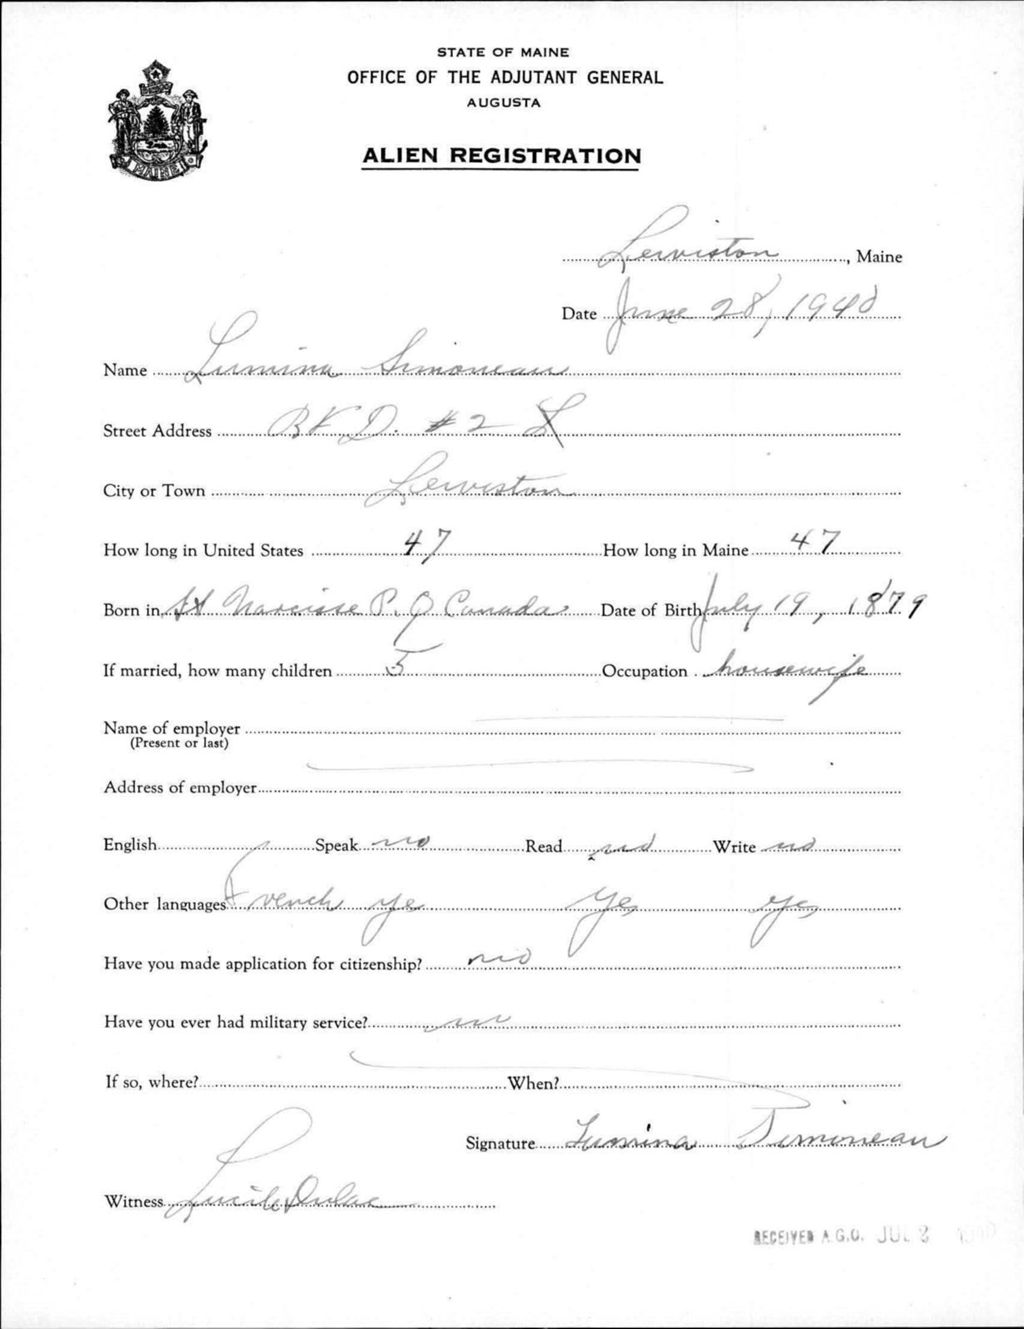 STATE OF MAINE
OFFICE OF THE ADJUTANT GENERAL
AUGUSTA
ALIEN REGISTRATION
MAINE
Lewiston, Maine
Date June 28, 1940
Name Lumina Simoneau
Street Address R F D. #2 L
City or Town Lewiston
How long in United States 47 How long in Maine 47
Born in St Narcisse P. Q Canada Date of Birth July 19, 1879
If married, how many children 5 Occupation housewife
Name of employer
(Present or last)
Address of employer
English Speak no Read no Write no
Other languages French yes Yes yes
Have you made application for citizenship? no
Have you ever had military service? no
If so, where? When?
Signature Lumina Simoneau
Witness Lucile Dulac
RECEIVED A.G.O. JUL 2 1940